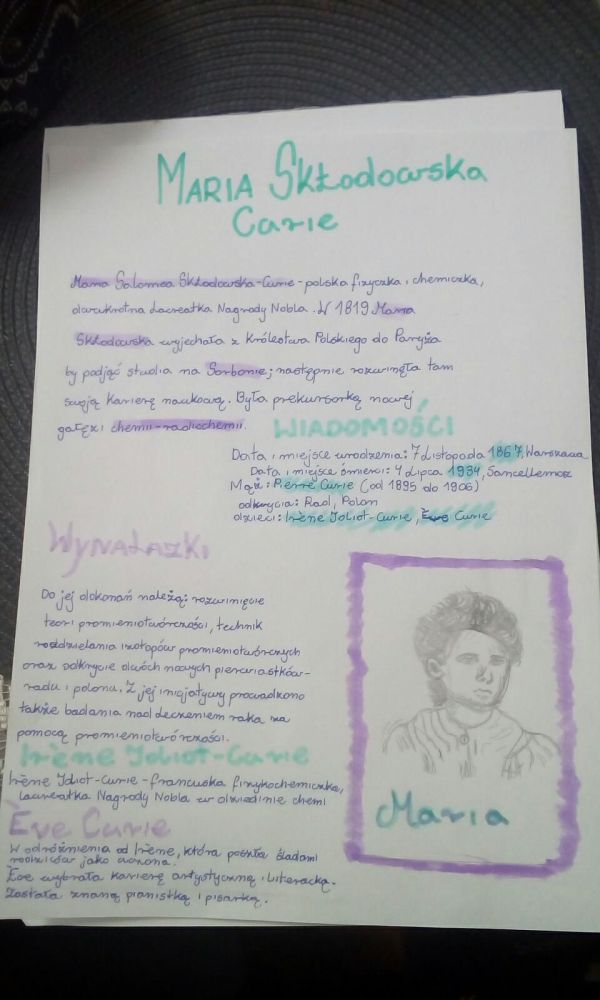 MARIA SKŁodowska
Curie
Maria Salomea Skłodowska-Curie - polska fizyczka i chemiczka,
dwukrotna Laureatka Nagrody Nobla. W 1819 Maria
Skłodowska wyjechała z Królestwa Polskiego do Paryża
by podjąć studia na Sorbonie; następnie rozwinęła tam
swoją karierę naukową. Była prekursorką nowej
gałęzi chemii-radiochemii.
WIADOMOŚCI
Data i miejsce urodzenia: 7 Listopada 1867, Warszawa
Data i miejsce śmierci: 4 Lipca 1934, Sancellemoz
Mąż: Pierre Curie (od 1895 do 1906)
odkrycia: Rad, Polon
dzieci: Irène Joliot-Curie, Ève Curie
WYNALAZKI
Do jej dokonań należą: rozwinięcie
teori promieniotwórczości, technik
rozdzielania izotopów promieniotwórczych
oraz odkrycie dwóch nowych pierwiastków-
radu i polonu. Z jej inicjatywy prowadzono
także badania nad leczeniem raka za
pomocą promieniotwórczości.
Irène Joliot-Curie
Irène Joliot-Curie - francuska fizykochemiczka,
laureatka Nagrody Nobla w dziedzinie chemi
Ève Curie
W odróżnienia od Irène, która poszła śladami
rodziców jako uczona.
Ève wybrała karierę artystyczną i literacką.
Została znaną pianistką i pisarką.
Maria